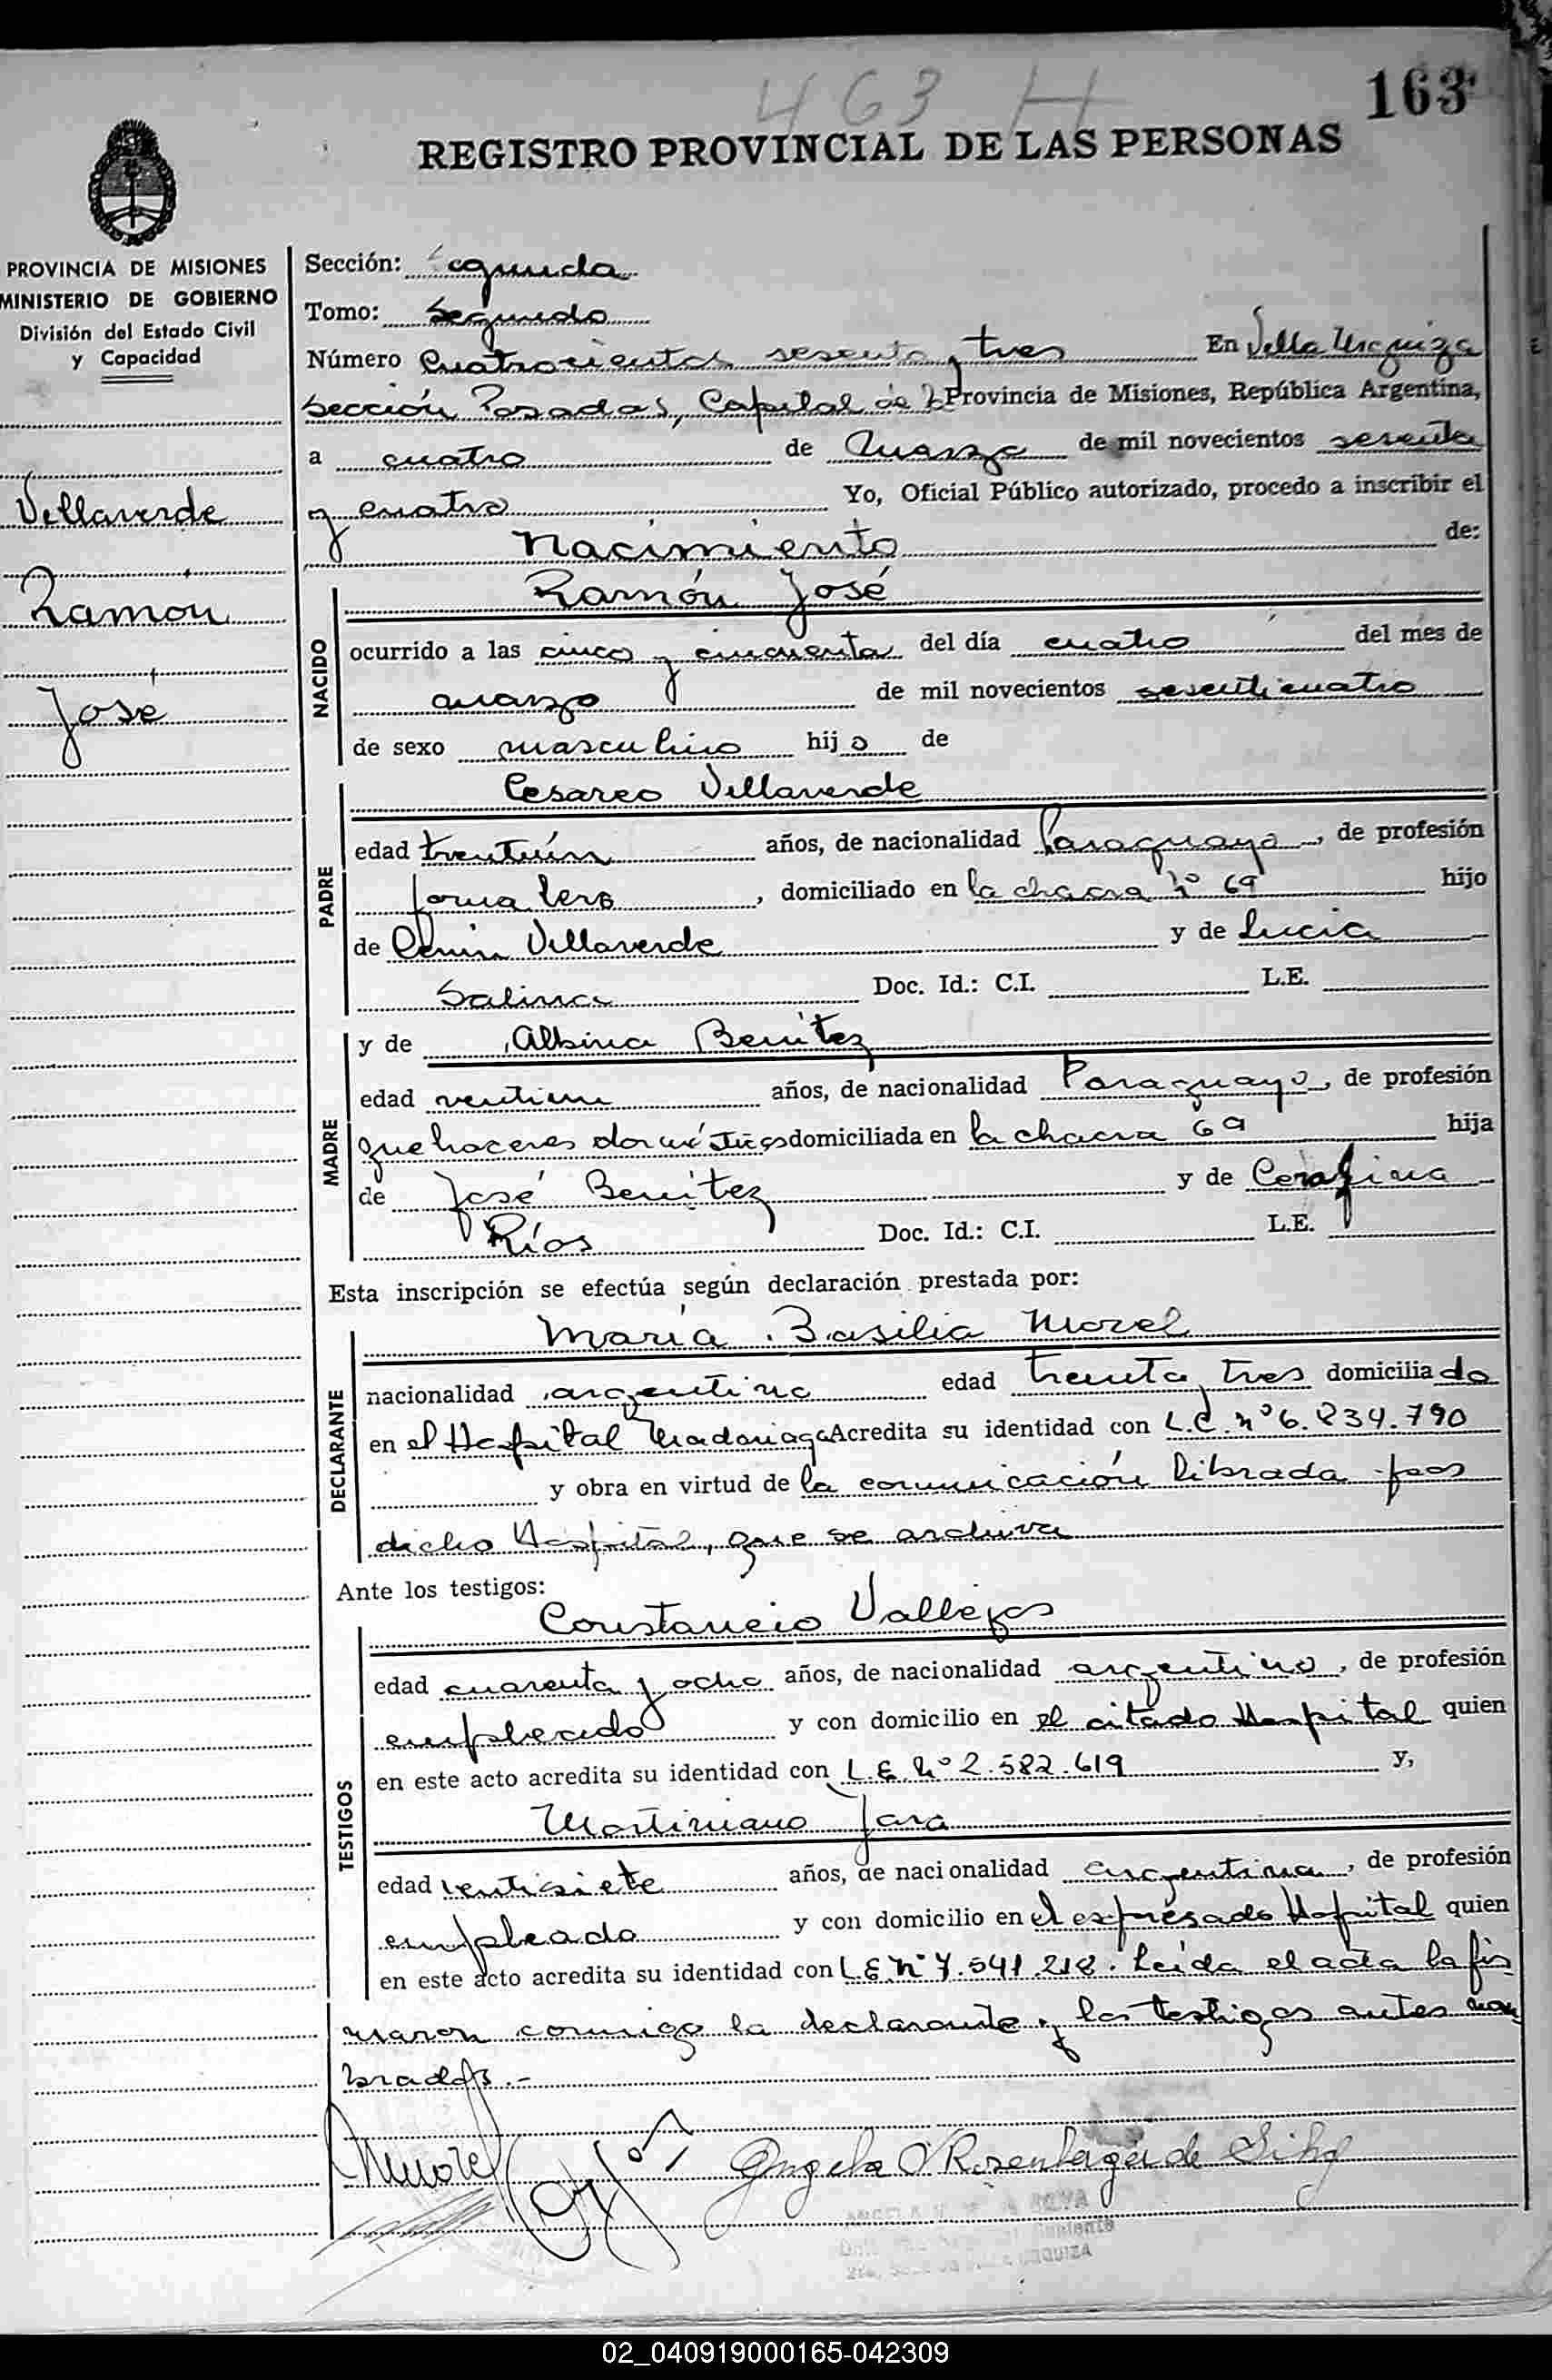 463 H
163
REGISTRO PROVINCIAL DE LAS PERSONAS
PROVINCIA DE MISIONES
MINISTERIO DE GOBIERNO
División del Estado Civil
y Capacidad
Villaverde
Ramon
José
Sección: Segunda
Tomo: Segundo
Número Cuatrocientos sesenta y tres En Villa Urquiza
Sección Posadas, Capital de la Provincia de Misiones, República Argentina,
a cuatro de Marzo de mil novecientos sesenta
y cuatro Yo, Oficial Público autorizado, procedo a inscribir el
Nacimiento de:
NACIDO
Ramón José
ocurrido a las cinco y cincuenta del día cuatro del mes de
marzo de mil novecientos sesenticuatro
de sexo masculino hijo de
PADRE
Cesareo Villaverde
edad trentiún años, de nacionalidad Paraguaya, de profesión
jornalero, domiciliado en la chacra nº 69 hijo
de Villaverde y de Lucia
Salina Doc. Id.: C.I. L.E.
MADRE
y de Albina Benítez
edad ventiun años, de nacionalidad Paraguayo, de profesión
quehaceres domésticos domiciliada en la chacra 69 hija
de José Benítez y de Cerafina
Ríos Doc. Id.: C.I. L.E.
Esta inscripción se efectúa según declaración prestada por:
DECLARANTE
María Basilia Morel
nacionalidad argentina edad trenta y tres domiciliado
en el Hospital Madariaga Acredita su identidad con L.C. nº 6.834.790
y obra en virtud de la comunicación librada por
dicho Hospital, que se archiva
Ante los testigos:
TESTIGOS
Constancio Vallejos
edad cuarenta y ocho años, de nacionalidad argentino, de profesión
empleado y con domicilio en el citado Hospital quien
en este acto acredita su identidad con L.E. Nº 2.582.619 y,
Martiniano Jara
edad ventisiete años, de nacionalidad argentina, de profesión
empleado y con domicilio en el expresado Hospital quien
en este acto acredita su identidad con L.E Nº 7.541.218. Leída el acta la fir
maron conmigo la declarante y los testigos antes nom
brados.-
MMorel
Angela V Rosenberger de Silva
URQUIZA
02_040919000165-042309